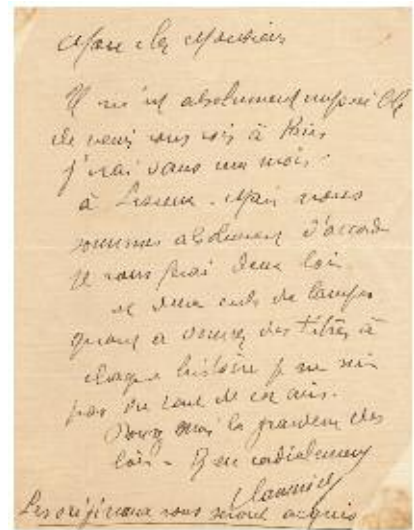 Mon cher Monsieur
Il m'est absolument impossible
de venir vous voir à Paris
j'irai dans un mois
à Lisieux. Mais nous
sommes absolument d'accord
je vous ferai deux bois
et deux culs de lampe
quant à donner des titres à
chaque histoire je ne suis
pas du tout de cet avis.
Donnez moi la grandeur des
bois - Bien cordialement
Vlaminck
Les originaux vous seront acquis